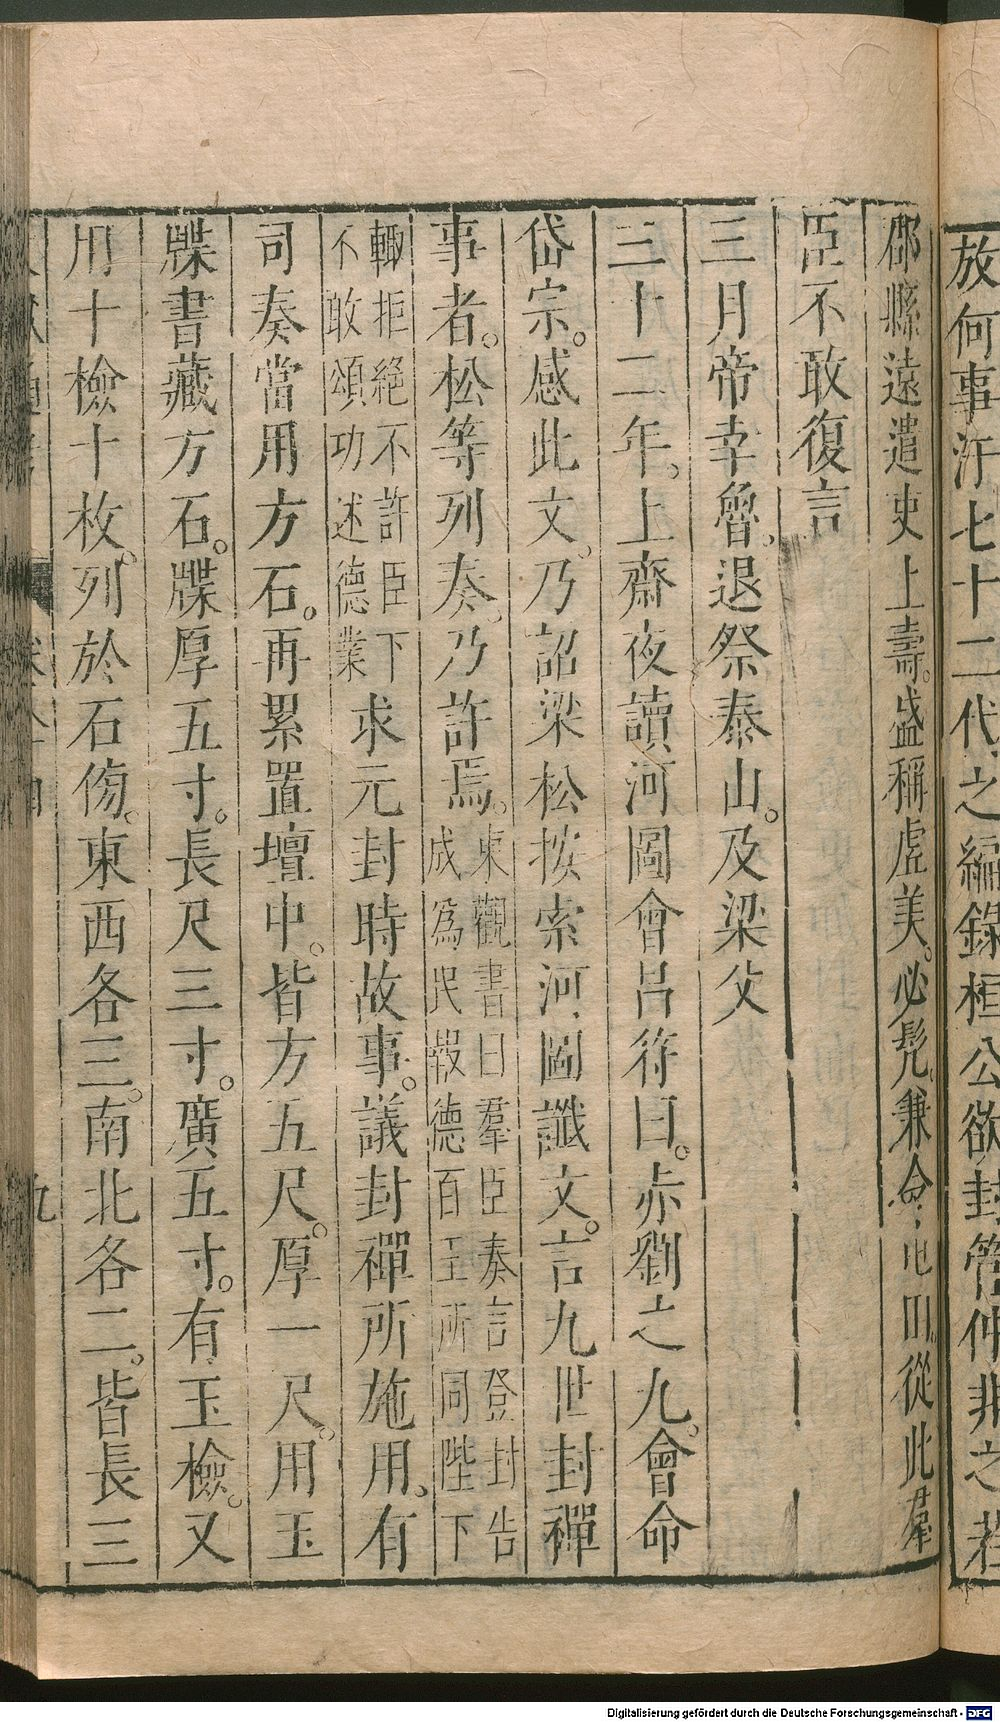 放何事汙七十二代之編錄桓公欲封管仲非之若
郡縣遠遣吏上壽。盛稱虛美。必髡。兼令屯田。從此羣
臣不敢復言
三月帝幸魯。退祭泰山。及梁父
三十二年。上齋夜讀河圖會昌符曰。赤劉之九。會命
岱宗。感此文。乃詔梁松按索河圖讖文。言九世封禪
事者。松等列奏。乃許焉。東觀書曰羣臣奏言登封告
成爲民報德百王所同陛下
輙拒絕不許臣下
不敢頌功述德業求元封時故事。議封禪所施用。有
司奏當用方石。再累置壇中。皆方五尺。厚一尺。用玉
牒書藏方石。牒厚五寸。長尺三寸。廣五寸。有玉檢。又
用十檢十枚。列於石傍。東西各三。南北各二。皆長三
九
Digitalisierung gefördert durch die Deutsche Forschungsgemeinschaft - DFG